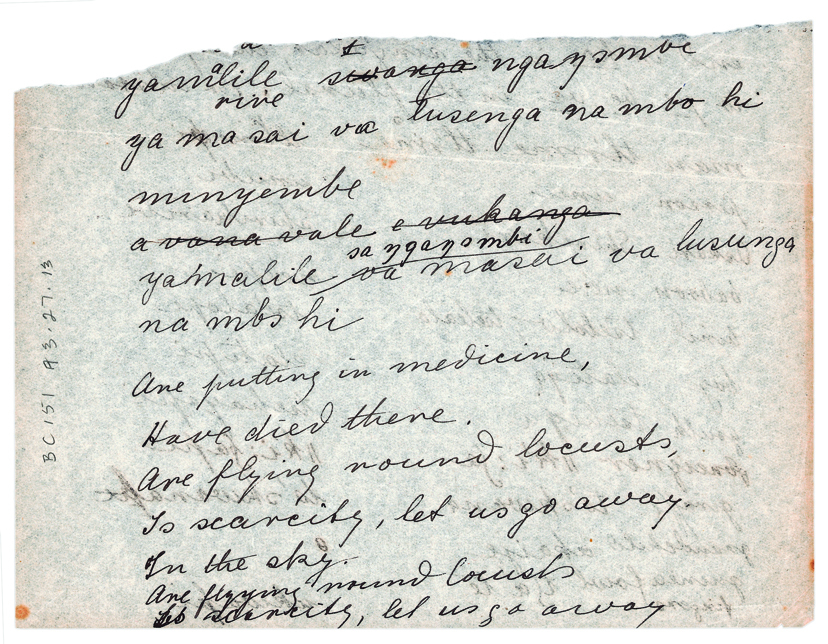 yamalile swanga ngaysmbe
rive
ya masai va lusenga na mbo hi
minyembe
a vana vale e vukanga
sa ngaysmbi
ya'malile va masai va lusunga
na mbs hi
Are putting in medicine,
Have died there.
Are flying round locusts,
Is scarcity, let us go away
In the sky.
Are flying round locusts
Is scarcity, let us go away
BC151 A3.27.13